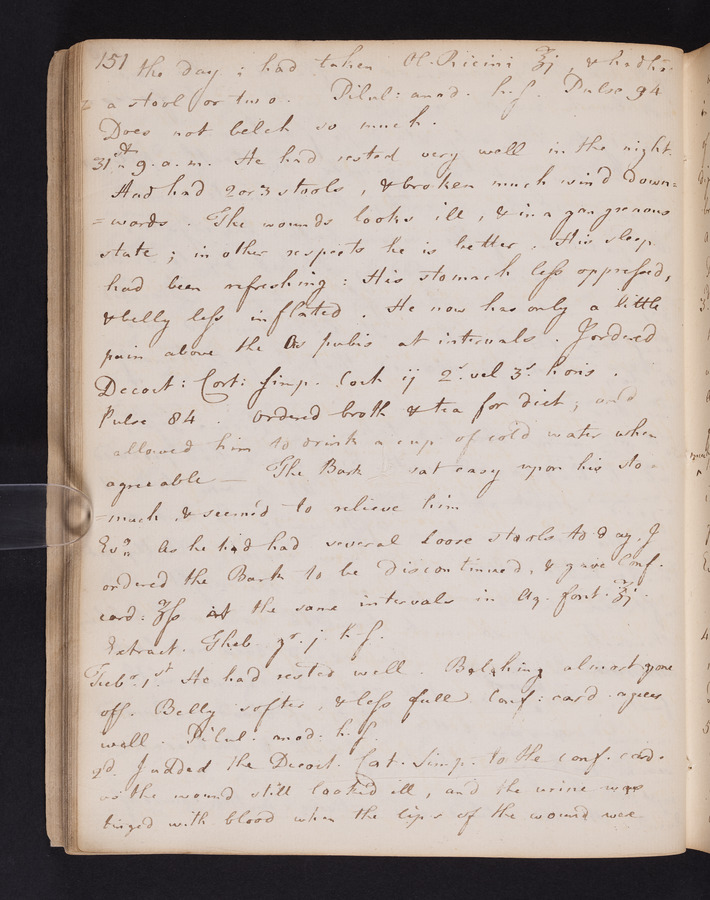 151 the day; had taken Ol. Ricini ℥j, & had
a stool or two. Pilul: anod. h.s. Pulse 94
Does not belch so much.
31st 9. a.m. He had rested very well in the night.
And had 2 or 3 stools, & broken much wind down=
=wards. The wounds looks ill, & in a gangrenous
state; in other respects he is better. His sleep
had been refreshing: His stomach less oppressed,
& belly less inflated. He now has only a little
pain above the Os pubis at intervals. I ordered
Decoct: Cort: simp. Coch ij 2s. vel 3s. horis.
Pulse 84. Ordered broth & tea for diet; and
allowed him to drink a cup of cold water when
agreeable — The Bark sat easy upon his sto-
=mach, & seem'd to relieve him
Evn. As he had had several loose stools to day, I
ordered the Bark to be discontinued, & gave Conf.
card: ʒſs at the same intervals in Aq. font. ℥j.
Extract. Theb. gr. j h.s.
Feb. 1st He had rested well. Belching almost gone
off. Belly softer, & less full. Conf: card. agrees
well. Pilul: anod: h.s.
2d. I added the Decoct. Cort. Simp. to the conf. card.
as the wound still looked ill, and the urine was
tinged with blood when the lips of the wound were